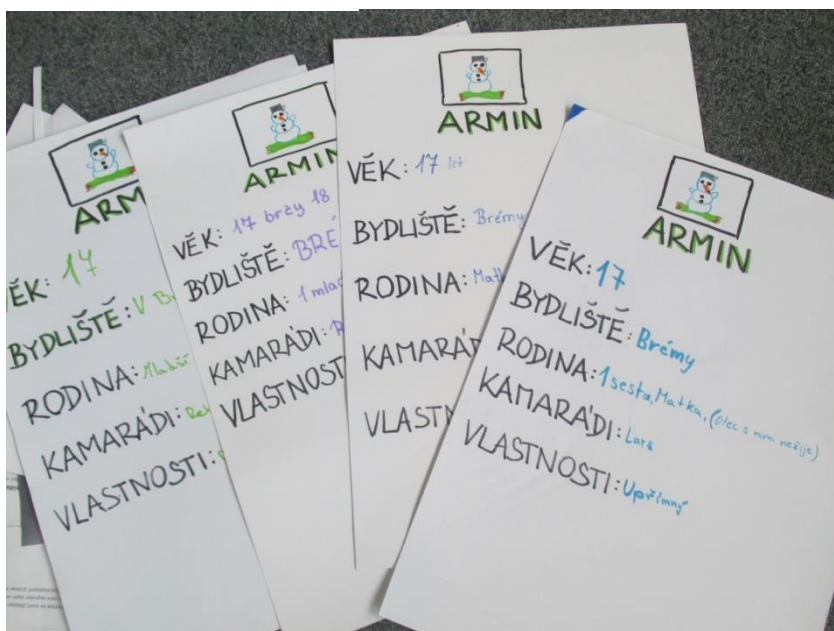 ARM
VĚK: 17
BYDLIŠTĚ: V
RODINA: Mladší
KAMARÁDI:
VLASTNOSTI:
ARMIN
VĚK: 17 brzy 18
BYDLIŠTĚ: BRÉ
RODINA: 1 mlad
KAMARÁDI:
VLASTNOST
ARMIN
VĚK: 17 let
BYDLIŠTĚ: Brémy
RODINA: Matk
KAMARÁ
VLASTN
ARMIN
VĚK: 17
BYDLIŠTĚ: Brémy
RODINA: 1 sesta, Matka, (Otec s nim nežije)
KAMARÁDI: Lars
VLASTNOSTI: Upřímný